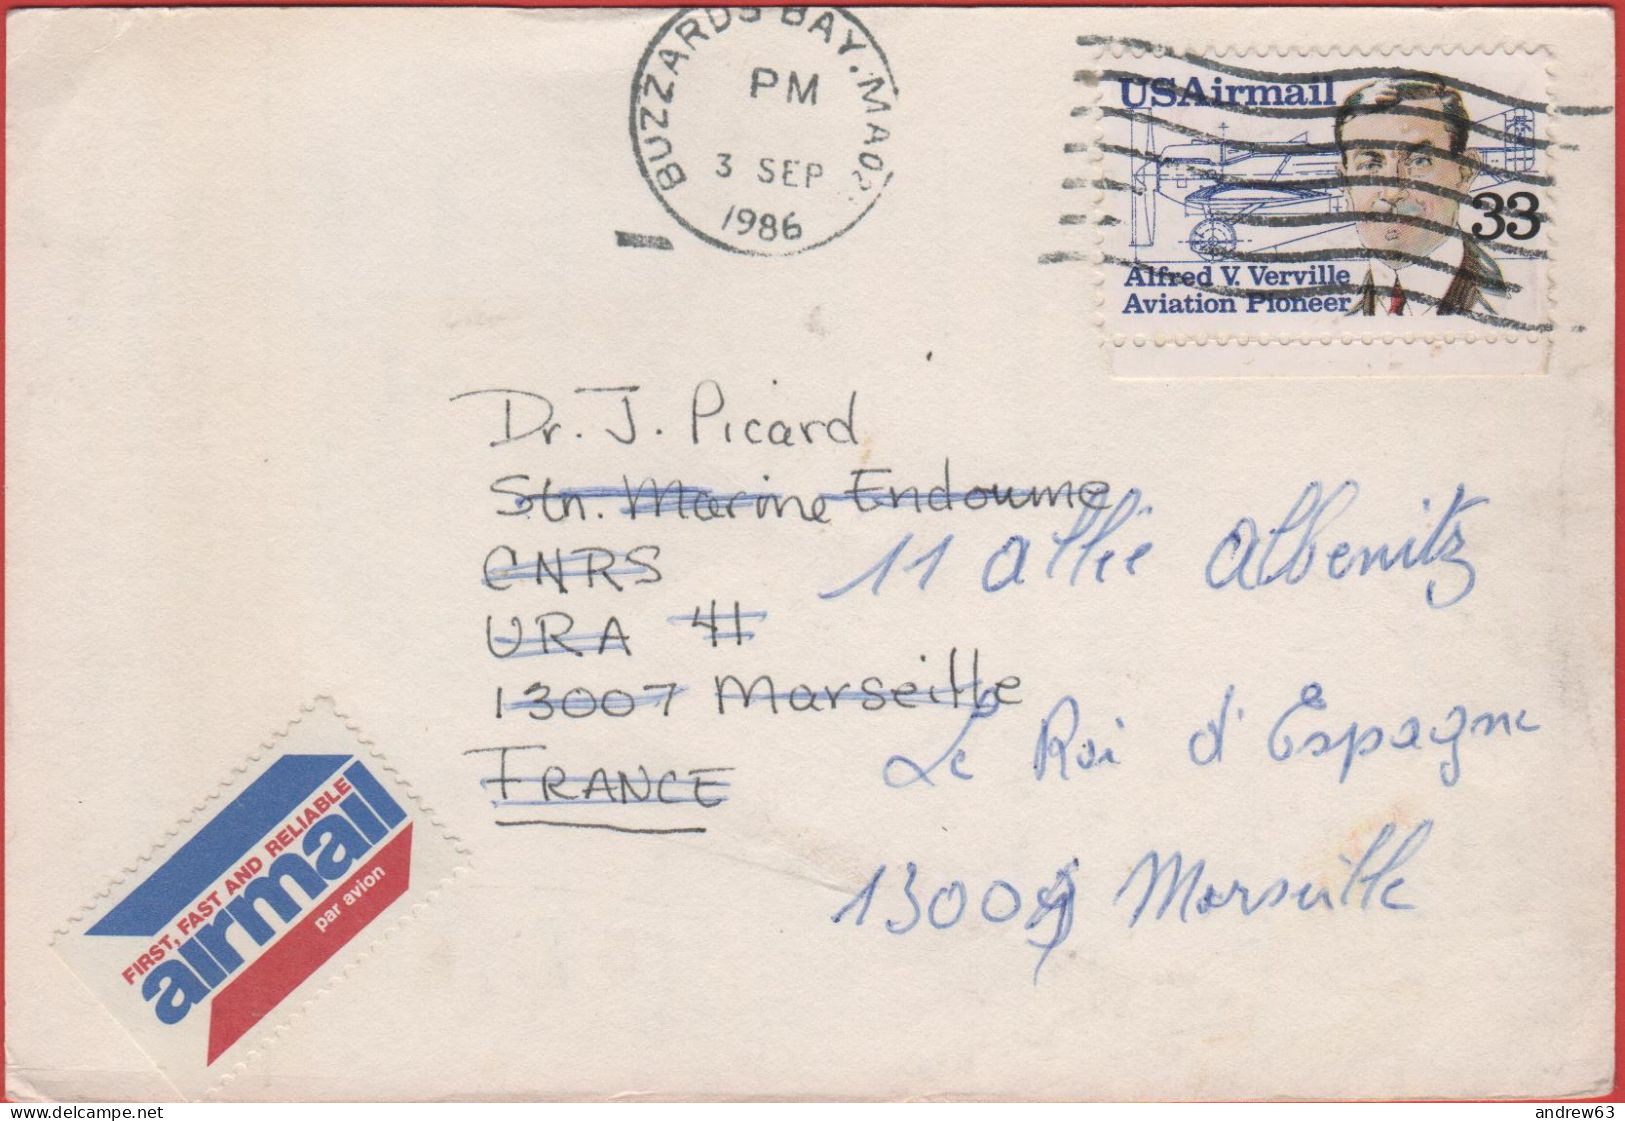 BUZZARDS BAY, MA02
PM
3 SEP
1986
USAirmail
33
Alfred V. Verville
Aviation Pioneer
Dr. J. Picard
Stn. Marine Endoume
CNRS
URA 41
13007 Marseille
FRANCE
11 allée albenitz
Le Roi d'Espagne
13009 Marseille
FIRST, FAST AND RELIABLE
airmail
par avion
delcampe.net
andrew63